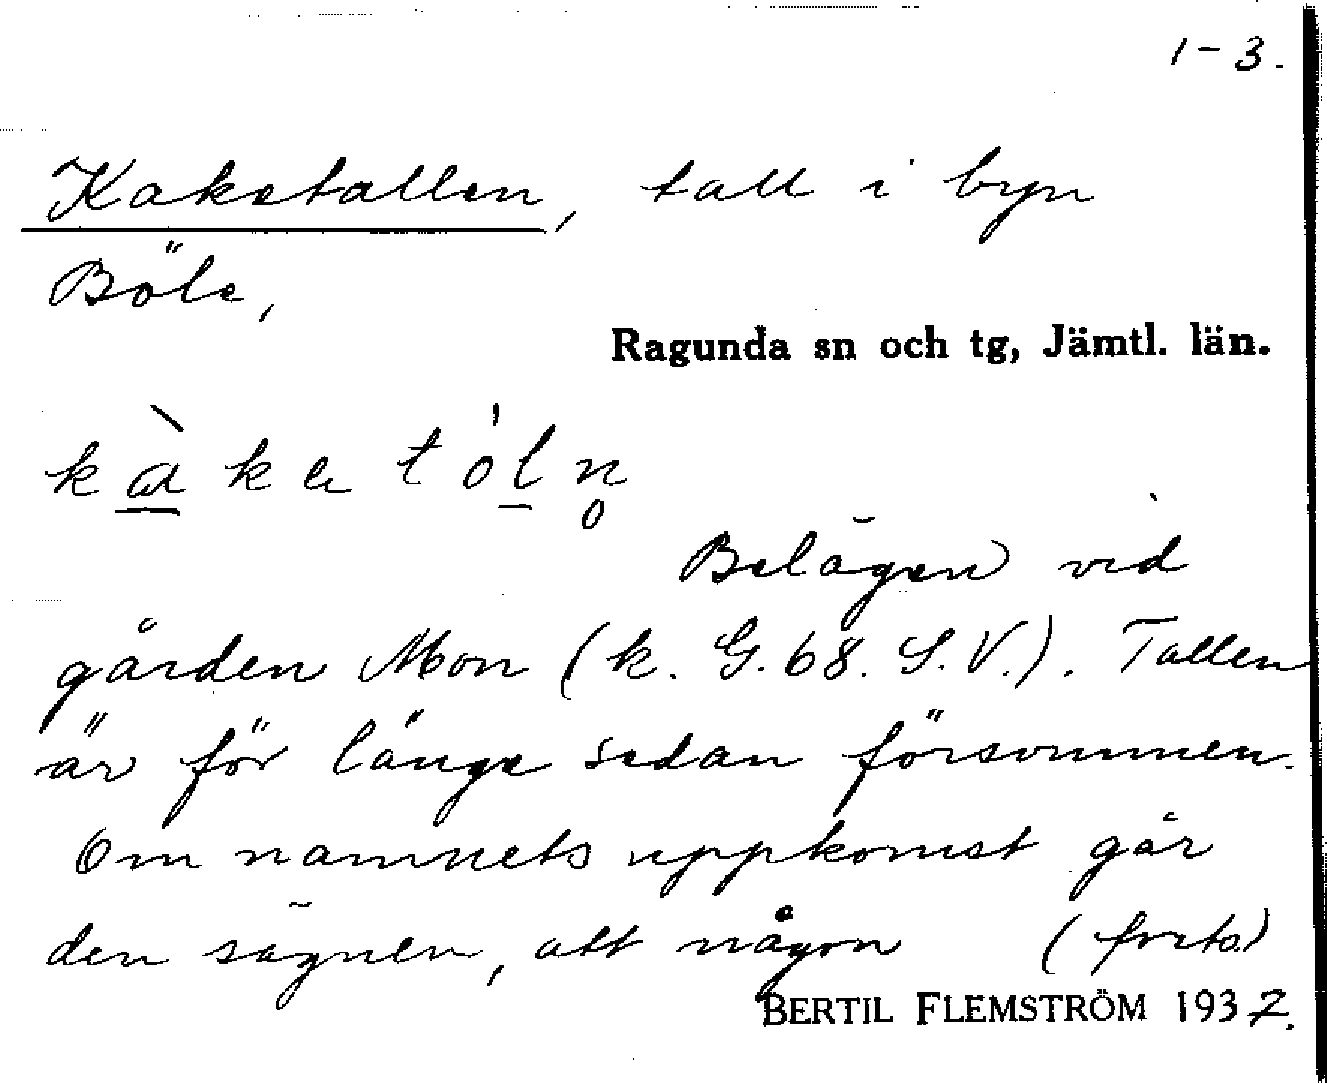 1-3.
Kaketallen, tall i byn
Böle,
Ragunda sn och tg, Jämtl. län.
kàketóln̥
Belägen vid
gården Mon (k. G. 68. S.V.). Tallen
är för länge sedan försvunnen.
Om namnets uppkomst går
den sägnen, att någon (forts.)
BERTIL FLEMSTRÖM 1937.